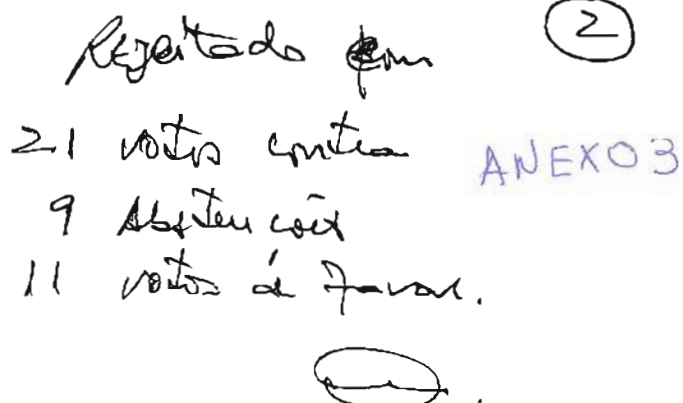 2
Rejeitado com
21 votos contra
ANEXO 3
9 Abstenções
11 votos á favor.